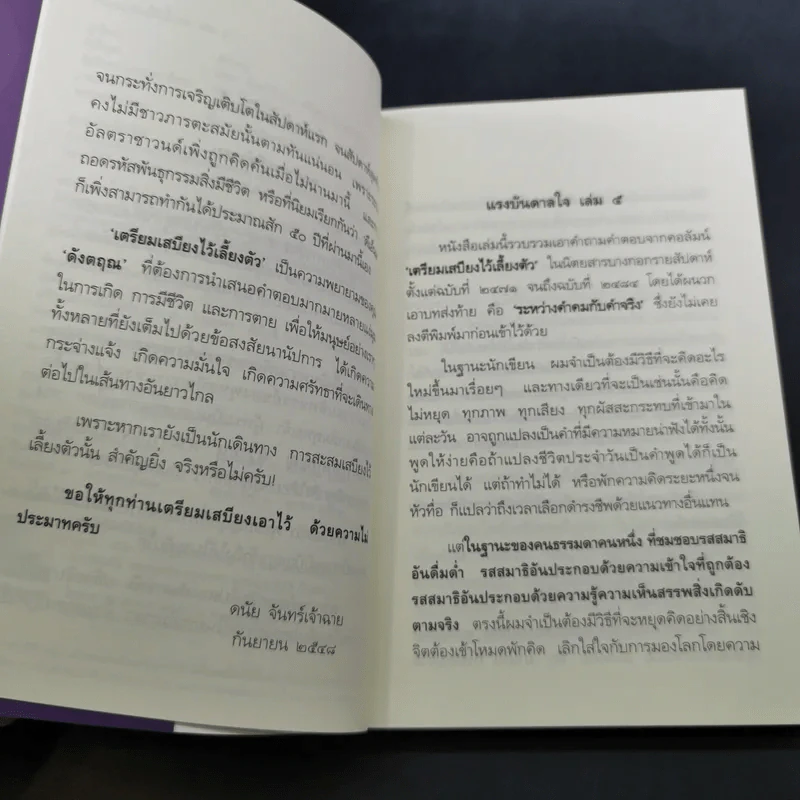 จนกระทั่งการเจริญเติบโตในสัปดาห์แรก จนสัปดาห์
คงไม่มีชาวภารตะสมัยนั้นตามทันแน่นอน เพราะ
อัลตราซาวนด์เพิ่งถูกคิดค้นเมื่อไม่นานมานี้ และ
ถอดรหัสพันธุกรรมสิ่งมีชีวิต หรือที่นิยมเรียกกันว่า
ก็เพิ่งสามารถทำกันได้ประมาณสัก ๕๐ ปีที่ผ่านมานี้เอง
'เตรียมเสบียงไว้เลี้ยงตัว' เป็นความพยายามของ
'ดังตฤณ' ที่ต้องการนำเสนอคำตอบมากมายหลายแง่
ในการเกิด การมีชีวิต และการตาย เพื่อให้มนุษย์อย่าง
ทั้งหลายที่ยังเต็มไปด้วยข้อสงสัยนานัปการ ได้เกิดความ
กระจ่างแจ้ง เกิดความมั่นใจ เกิดความศรัทธาที่จะเดินทาง
ต่อไปในเส้นทางอันยาวไกล
เพราะหากเรายังเป็นนักเดินทาง การสะสมเสบียงไว้
เลี้ยงตัวนั้น สำคัญยิ่ง จริงหรือไม่ครับ!
ขอให้ทุกท่านเตรียมเสบียงเอาไว้ ด้วยความไม่
ประมาทครับ
ดนัย จันทร์เจ้าฉาย
กันยายน ๒๕๔๘
แรงบันดาลใจ เล่ม ๕
หนังสือเล่มนี้รวบรวมเอาคำถามคำตอบจากคอลัมน์
'เตรียมเสบียงไว้เลี้ยงตัว' ในนิตยสารบางกอกรายสัปดาห์
ตั้งแต่ฉบับที่ ๒๔๗๑ จนถึงฉบับที่ ๒๔๘๔ โดยได้ผนวก
เอาบทส่งท้าย คือ 'ระหว่างคำคมกับคำจริง' ซึ่งยังไม่เคย
ลงตีพิมพ์มาก่อนเข้าไว้ด้วย
ในฐานะนักเขียน ผมจำเป็นต้องมีวิธีที่จะคิดอะไร
ใหม่ขึ้นมาเรื่อยๆ และทางเดียวที่จะเป็นเช่นนั้นคือคิด
ไม่หยุด ทุกภาพ ทุกเสียง ทุกผัสสะกระทบที่เข้ามาใน
แต่ละวัน อาจถูกแปลงเป็นคำที่มีความหมายน่าฟังได้ทั้งนั้น
พูดให้ง่ายคือถ้าแปลงชีวิตประจำวันเป็นคำพูดได้ก็เป็น
นักเขียนได้ แต่ถ้าทำไม่ได้ หรือพักความคิดระยะหนึ่งจน
หัวทื่อ ก็แปลว่าถึงเวลาเลือกดำรงชีพด้วยแนวทางอื่นแทน
แต่ในฐานะของคนธรรมดาคนหนึ่ง ที่ชมชอบรสสมาธิ
อันดื่มด่ำ รสสมาธิอันประกอบด้วยความเข้าใจที่ถูกต้อง
รสสมาธิอันประกอบด้วยความรู้ความเห็นสรรพสิ่งเกิดดับ
ตามจริง ตรงนี้ผมจำเป็นต้องมีวิธีที่จะหยุดคิดอย่างสิ้นเชิง
จิตต้องเข้าโหมดพักคิด เลิกใส่ใจกับการมองโลกโดยความ